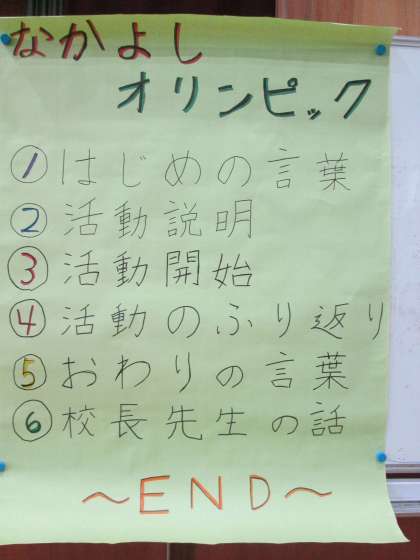 なかよし
オリンピック
① はじめの言葉
② 活動説明
③ 活動開始
④ 活動のふり返り
⑤ おわりの言葉
⑥ 校長先生の話
～END～